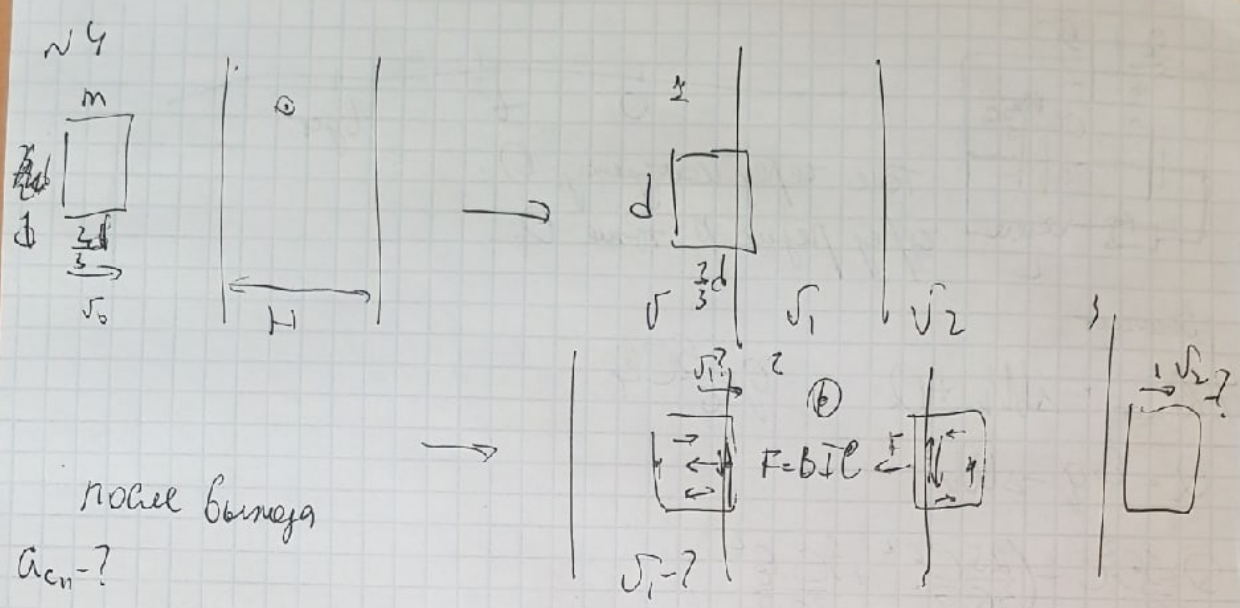 N 4
m
d
2/3 d
v₀
H
1
d
2/3 d
v v₁ v₂
v₁? 2
F=BIl F
3
v₂-?
после выхода
aсп-?
v₁-?